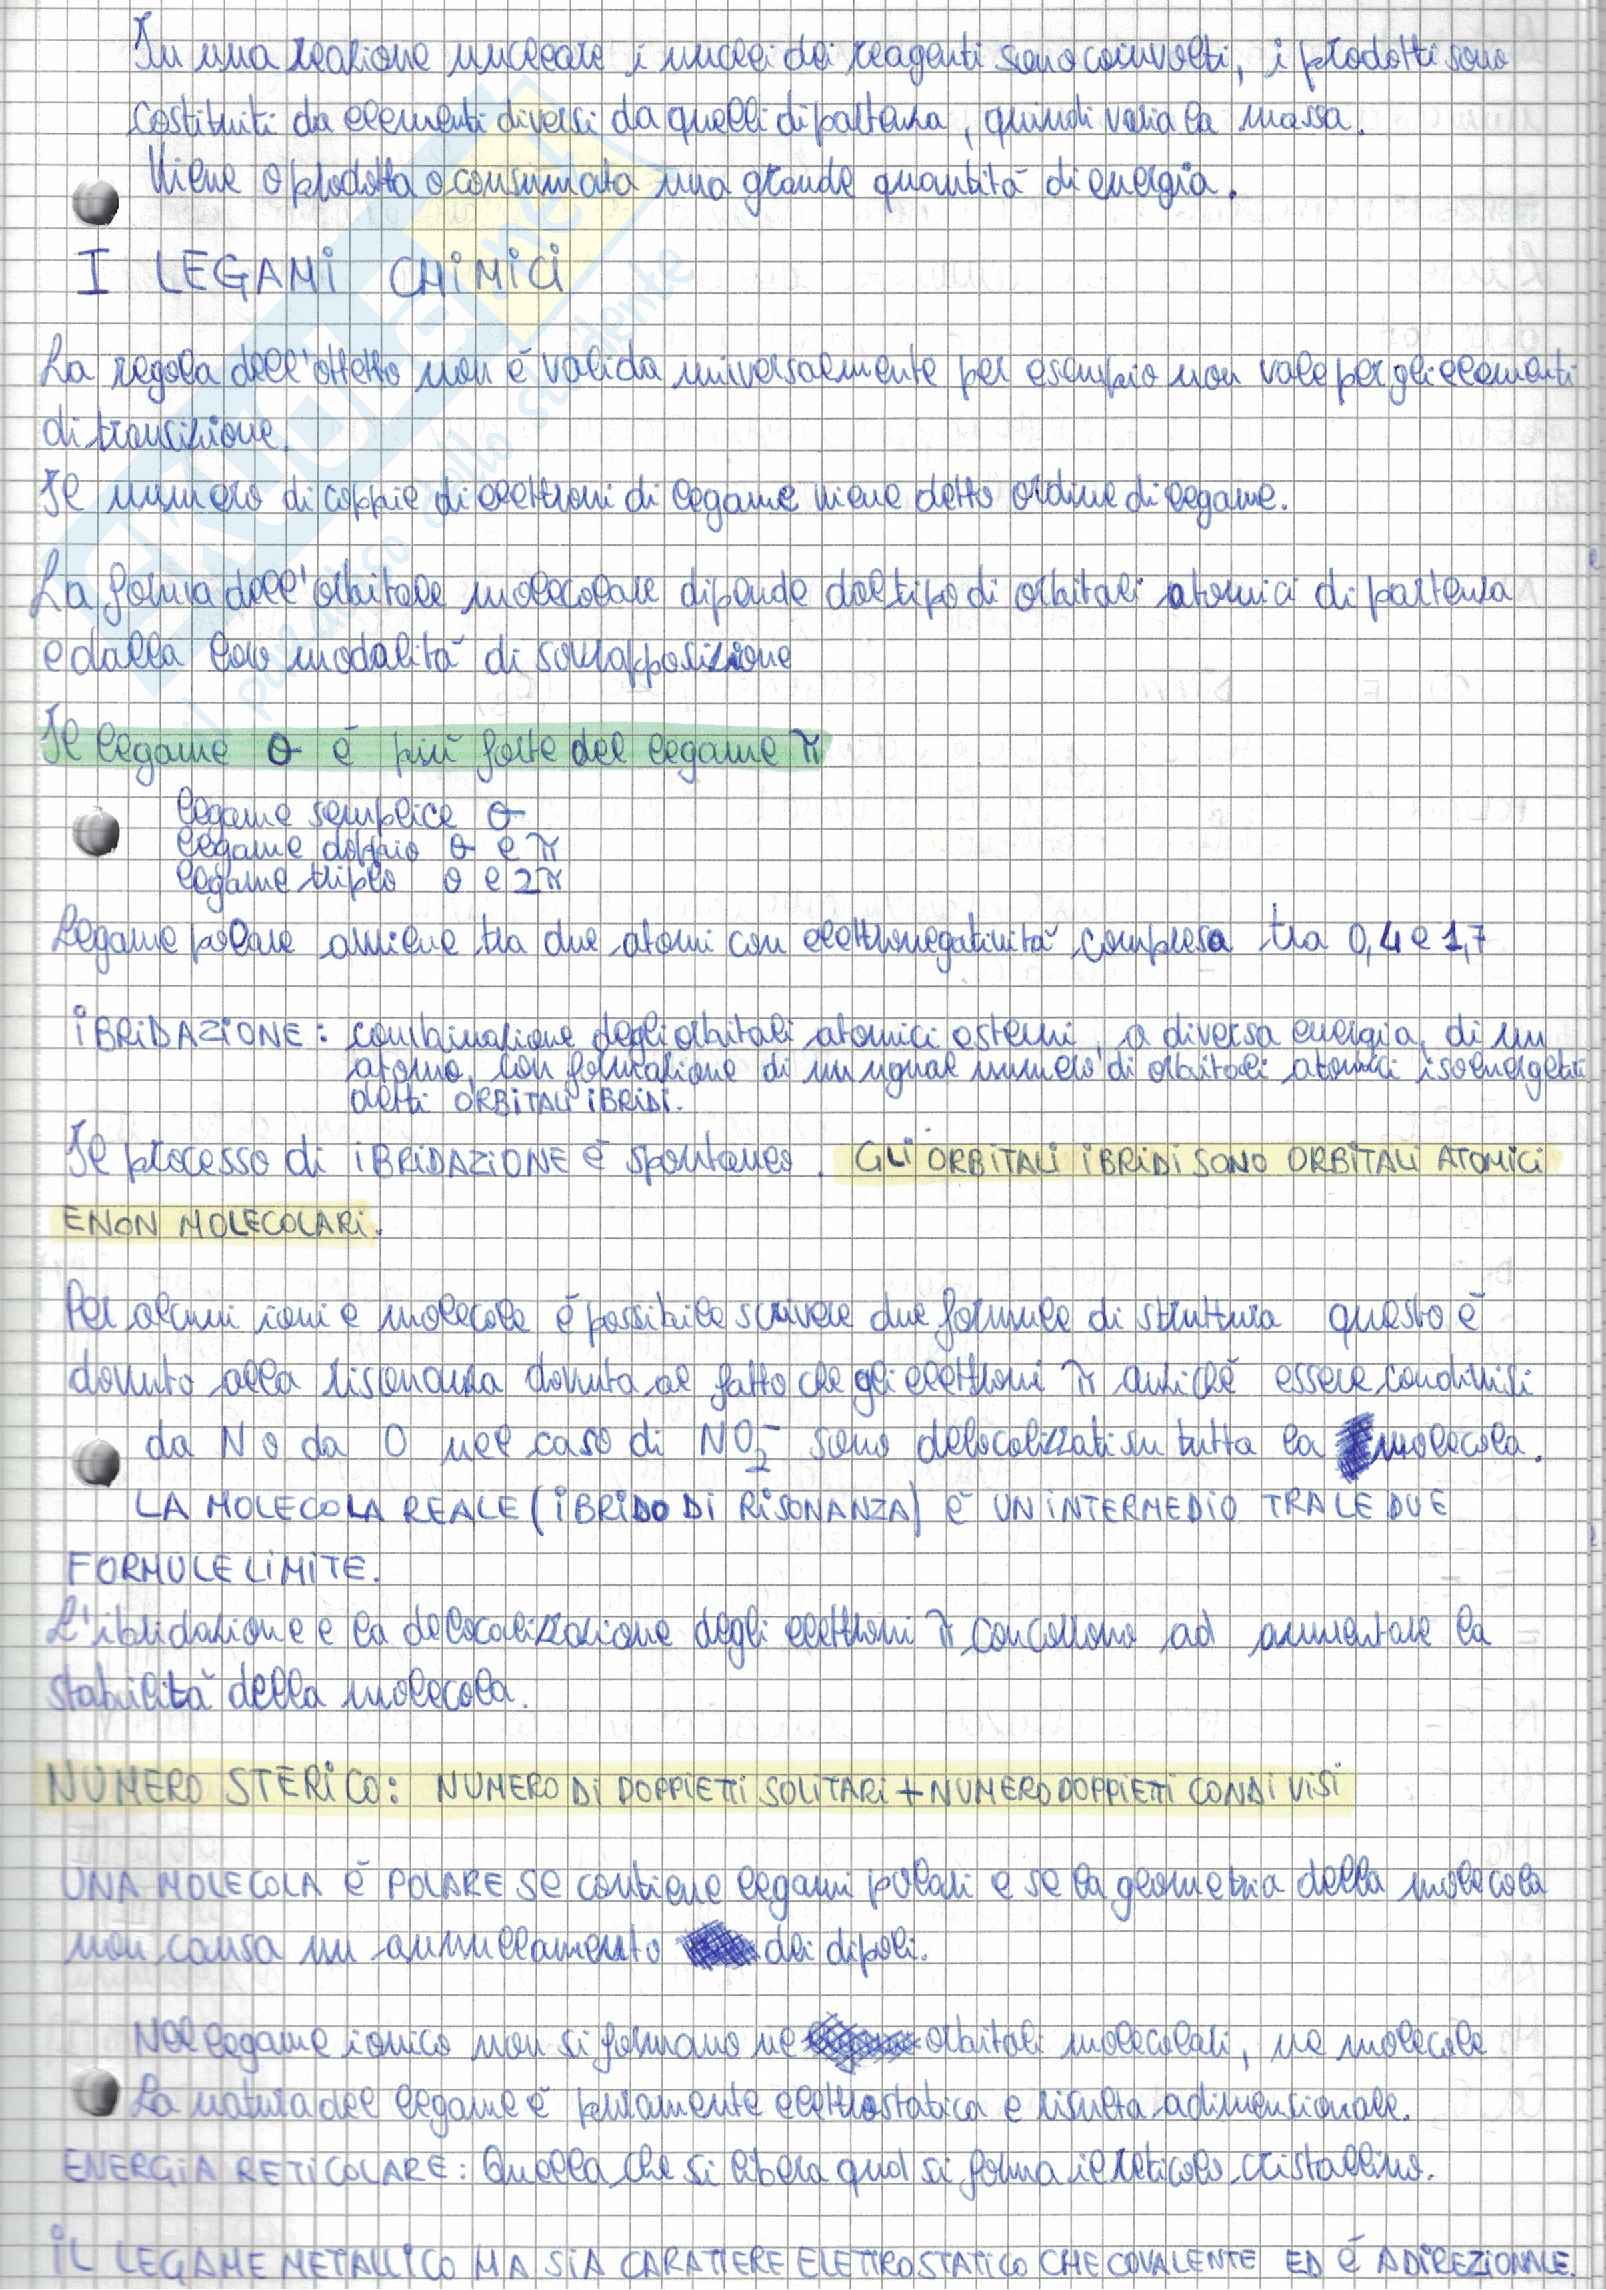 In una reazione nucleare i nuclei dei reagenti sono coinvolti, i prodotti sono
costituiti da elementi diversi da quelli di partenza, quindi varia la massa.
Viene o prodotta o consumata una grande quantità di energia.
I LEGAMI CHIMICI
La regola dell'ottetto non è valida universalmente per esempio non vale per gli elementi
di transizione.
Il numero di coppie di elettroni di legame viene detto ordine di legame.
La forma dell'orbitale molecolare dipende dal tipo di orbitali atomici di partenza
e dalla loro modalità di sovrapposizione
Il legame σ è più forte del legame π
legame semplice σ
legame doppio σ e π
legame triplo σ e 2π
Legame polare avviene tra due atomi con elettronegatività compresa tra 0,4 e 1,7
IBRIDAZIONE: combinazione degli orbitali atomici esterni, a diversa energia, di un
atomo, con formazione di un ugual numero di orbitali atomici isoenergetici
detti ORBITALI IBRIDI.
Il processo di IBRIDAZIONE è spontaneo. GLI ORBITALI IBRIDI SONO ORBITALI ATOMICI
E NON MOLECOLARI.
Per alcuni ioni e molecole è possibile scrivere due formule di struttura questo è
dovuto alla risonanza dovuta al fatto che gli elettroni π anziché essere condivisi
da N o da O nel caso di NO₂⁻ sono delocalizzati su tutta la molecola.
LA MOLECOLA REALE (IBRIDO DI RISONANZA) È UN INTERMEDIO TRA LE DUE
FORMULE LIMITE.
L'ibridazione e la delocalizzazione degli elettroni π concorrono ad aumentare la
stabilità della molecola.
NUMERO STERICO: NUMERO DI DOPPIETTI SOLITARI + NUMERO DOPPIETTI CONDIVISI
UNA MOLECOLA È POLARE SE contiene legami polari e se la geometria della molecola
non causa un annullamento dei dipoli.
Nel legame ionico non si formano ne orbitali molecolari, ne molecole
La natura del legame è puramente elettrostatica e risulta adimensionale.
ENERGIA RETICOLARE: Quella che si libera qual si forma il reticolo cristallino.
IL LEGAME METALLICO HA SIA CARATTERE ELETTROSTATICO CHE COVALENTE ED È ADIREZIONALE.
SKUOLA.net
il paradiso dello studente